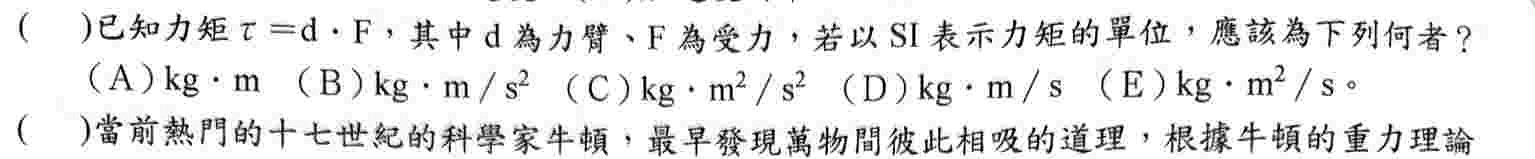 (　)已知力矩τ=d・F，其中 d 為力臂、F 為受力，若以 SI 表示力矩的單位，應該為下列何者？
(A)kg・m (B)kg・m/s² (C)kg・m²/s² (D)kg・m/s (E)kg・m²/s。
(　)當前熱門的十七世紀的科學家牛頓，最早發現萬物間彼此相吸的道理，根據牛頓的重力理論